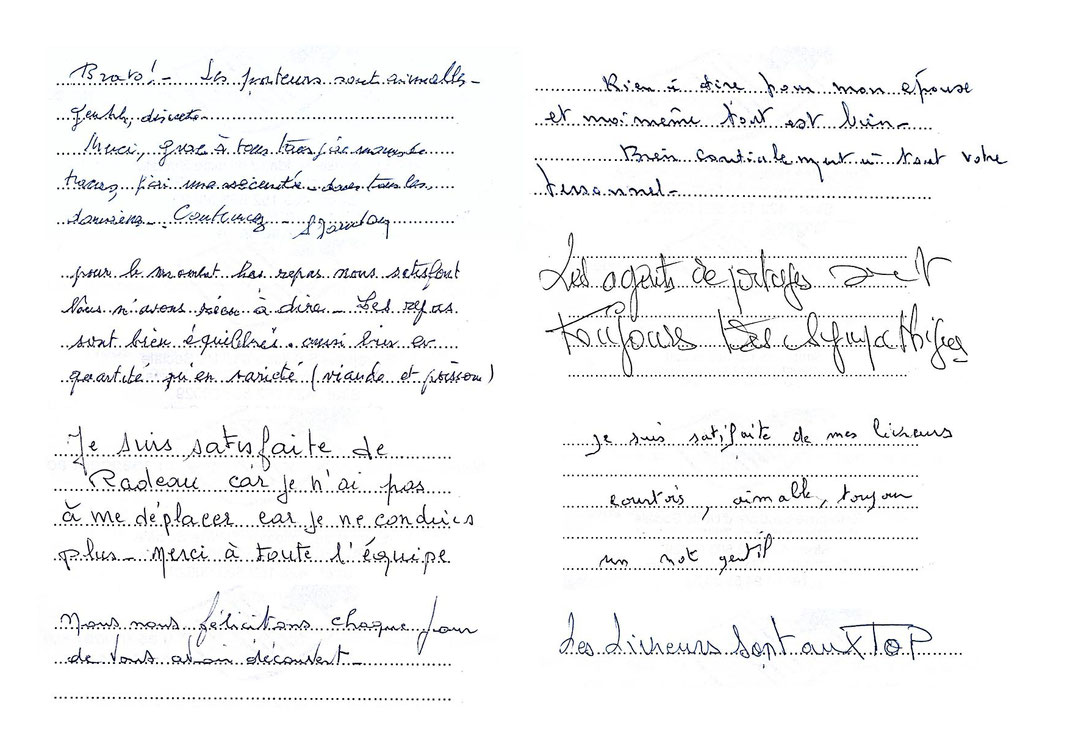 Bravo! - Les porteurs sont aimables -
gentils, discrets -
Merci, grâce à tous
j'ai une sécurité dans tous les
domaines. Continuez -
pour le moment les repas nous satisfont
Nous n'avons rien à dire - Les repas
sont bien équilibrés. aussi bien en
quantité qu'en varieté (viande et poisson)
Je suis satisfaite de
Radeau car je n'ai pas
à me déplacer car je ne conduis
plus - Merci à toute l'équipe
Nous nous félicitons chaque jour
de vous avoir découvert -
Rien à dire pour mon épouse
et moi même tout est bien -
Bien cordialement à tout votre
personnel -
Les agents de portages sont
Toujours très sympathiques
je suis satisfaite de mes livreurs
courtois, aimable, toujour
un mot gentil
Les Livreurs sont au X TOP